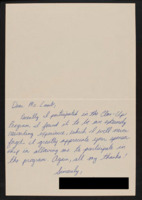 Dear Mr. Cook,
Recently I participated in the Close-Up
Program. I found it to be an extremely
rewarding experience, which I will never
forget. I greatly appreciate your sponsor-
ship in allowing me to participate in
the program. Again, all my thanks!
Sincerely,